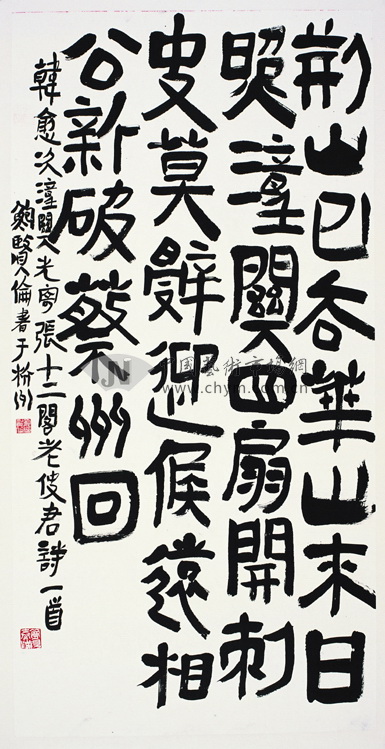 荊山已去華山來日
照潼關四扇開刺
史莫辭迎候遠相
公新破蔡州回
韓愈次潼關先寄張十二閣老使君詩一首
鮑賢倫書于杭州
中國藝術市場網